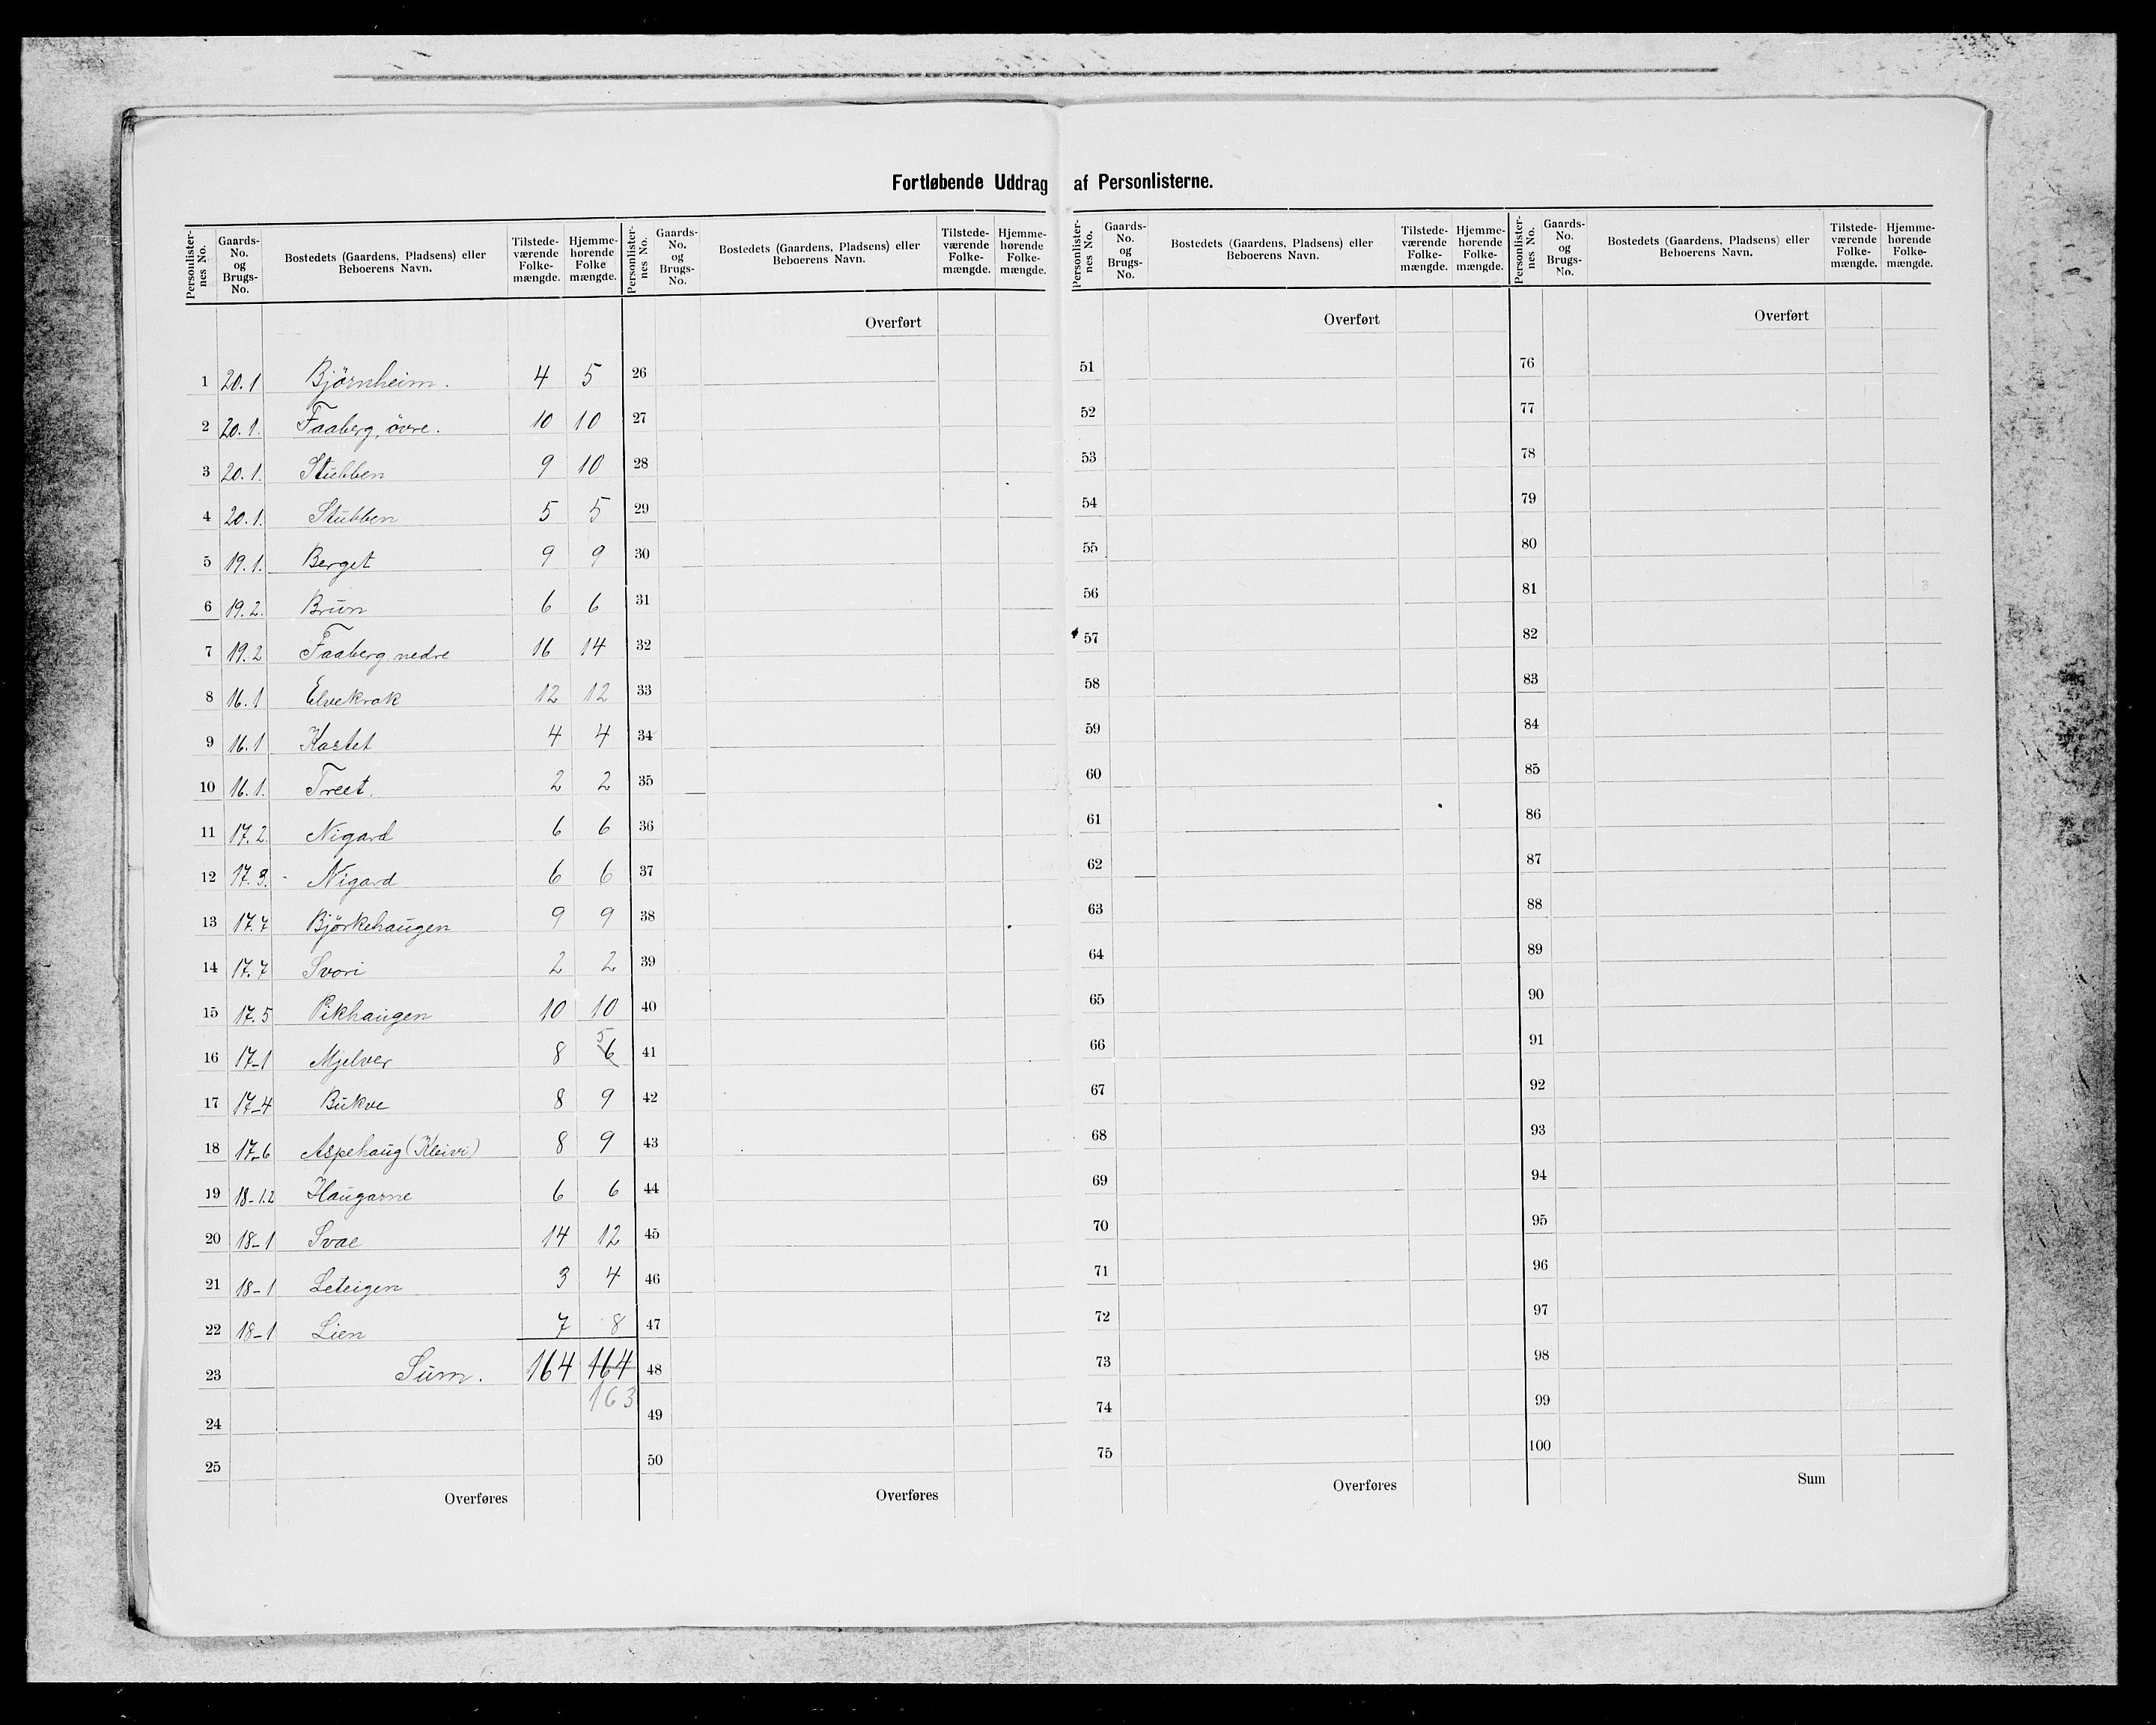 Fortløbende Uddrag af Personlisterne.
Personlister-nes No. Gaards-No. og Brugs-No. Bostedets (Gaardens, Pladsens) eller Beboerens Navn. Tilstede-værende Folke-mængde. Hjemme-hørende Folke mængde.
1 20.1 Bjørnheim. 4 5
2 20.1. Faaberg, övre. 10 10
3 20.1. Stubben 9 10
4 20.1. Stubben 5 5
5 19.1. Berget 9 9
6 19.2. Brun 6 6
7 19.2 Faaberg nedre 16 14
8 16.1 Elvekrok 12 12
9 16.1 Kastet 4 4
10 16.1. Treet. 2 2
11 17.2. Nigard 6 6
12 17.3. - Nigard 6 6
13 17.7 Bjørkehaugen 9 9
14 17.7 Svori 2 2
15 17.5 Pikhaugen 10 10
16 17-1 Mjelver 8 6 5
17 17-4 Bukve 8 9
18 17-6 Aspehaug (Kleivi) 8 9
19 18-1.2 Haugarne 6 6
20 18-1 Svae 14 12
21 18-1 Leteigen 3 4
22 18-1 Lien 7 8
23 Sum. 164 164
163
24
25
Overføres
Personlister-nes No. Gaards-No. og Brugs-No. Bostedets (Gaardens, Pladsens) eller Beboerens Navn. Tilstede-værende Folke-mængde. Hjemme-hørende Folke-mængde.
Overført
26
27
28
29
30
31
32
33
34
35
36
37
38
39
40
41
42
43
44
45
46
47
48
49
50
Overføres
Personlister-nes No. Gaards-No. og Brugs-No. Bostedets (Gaardens, Pladsens) eller Beboerens Navn. Tilstede-værende Folke-mængde. Hjemme-hørende Folke-mængde.
Overført
51
52
53
54
55
56
57
58
59
60
61
62
63
64
65
66
67
68
69
70
71
72
73
74
75
Overføres
Personlister-nes No. Gaards-No. og Brugs-No. Bostedets (Gaardens, Pladsens) eller Beboerens Navn. Tilstede-værende Folke-mængde. Hjemme-hørende Folke-mængde.
Overført
76
77
78
79
80
81
82
83
84
85
86
87
88
89
90
91
92
93
94
95
96
97
98
99
100
Sum